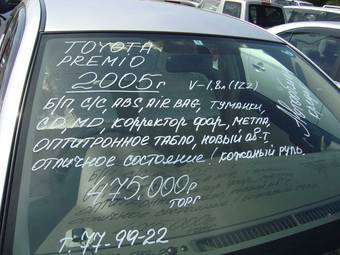 TOYOTA
PREMIO
2005г
V-1,8л (1ZZ)
Б/П, С/С, ABS, AIR BAG, ТУМАНКИ,
CD, MD, КОРРЕКТОР ФАР, МЕТЛА,
ОПТИТРОННОЕ ТАБЛО, НОВЫЙ АВ-Т,
ОТЛИЧНОЕ СОСТОЯНИЕ! КОЖАНЫЙ РУЛЬ.
475.000р
ТОРГ
Т. 77-99-22